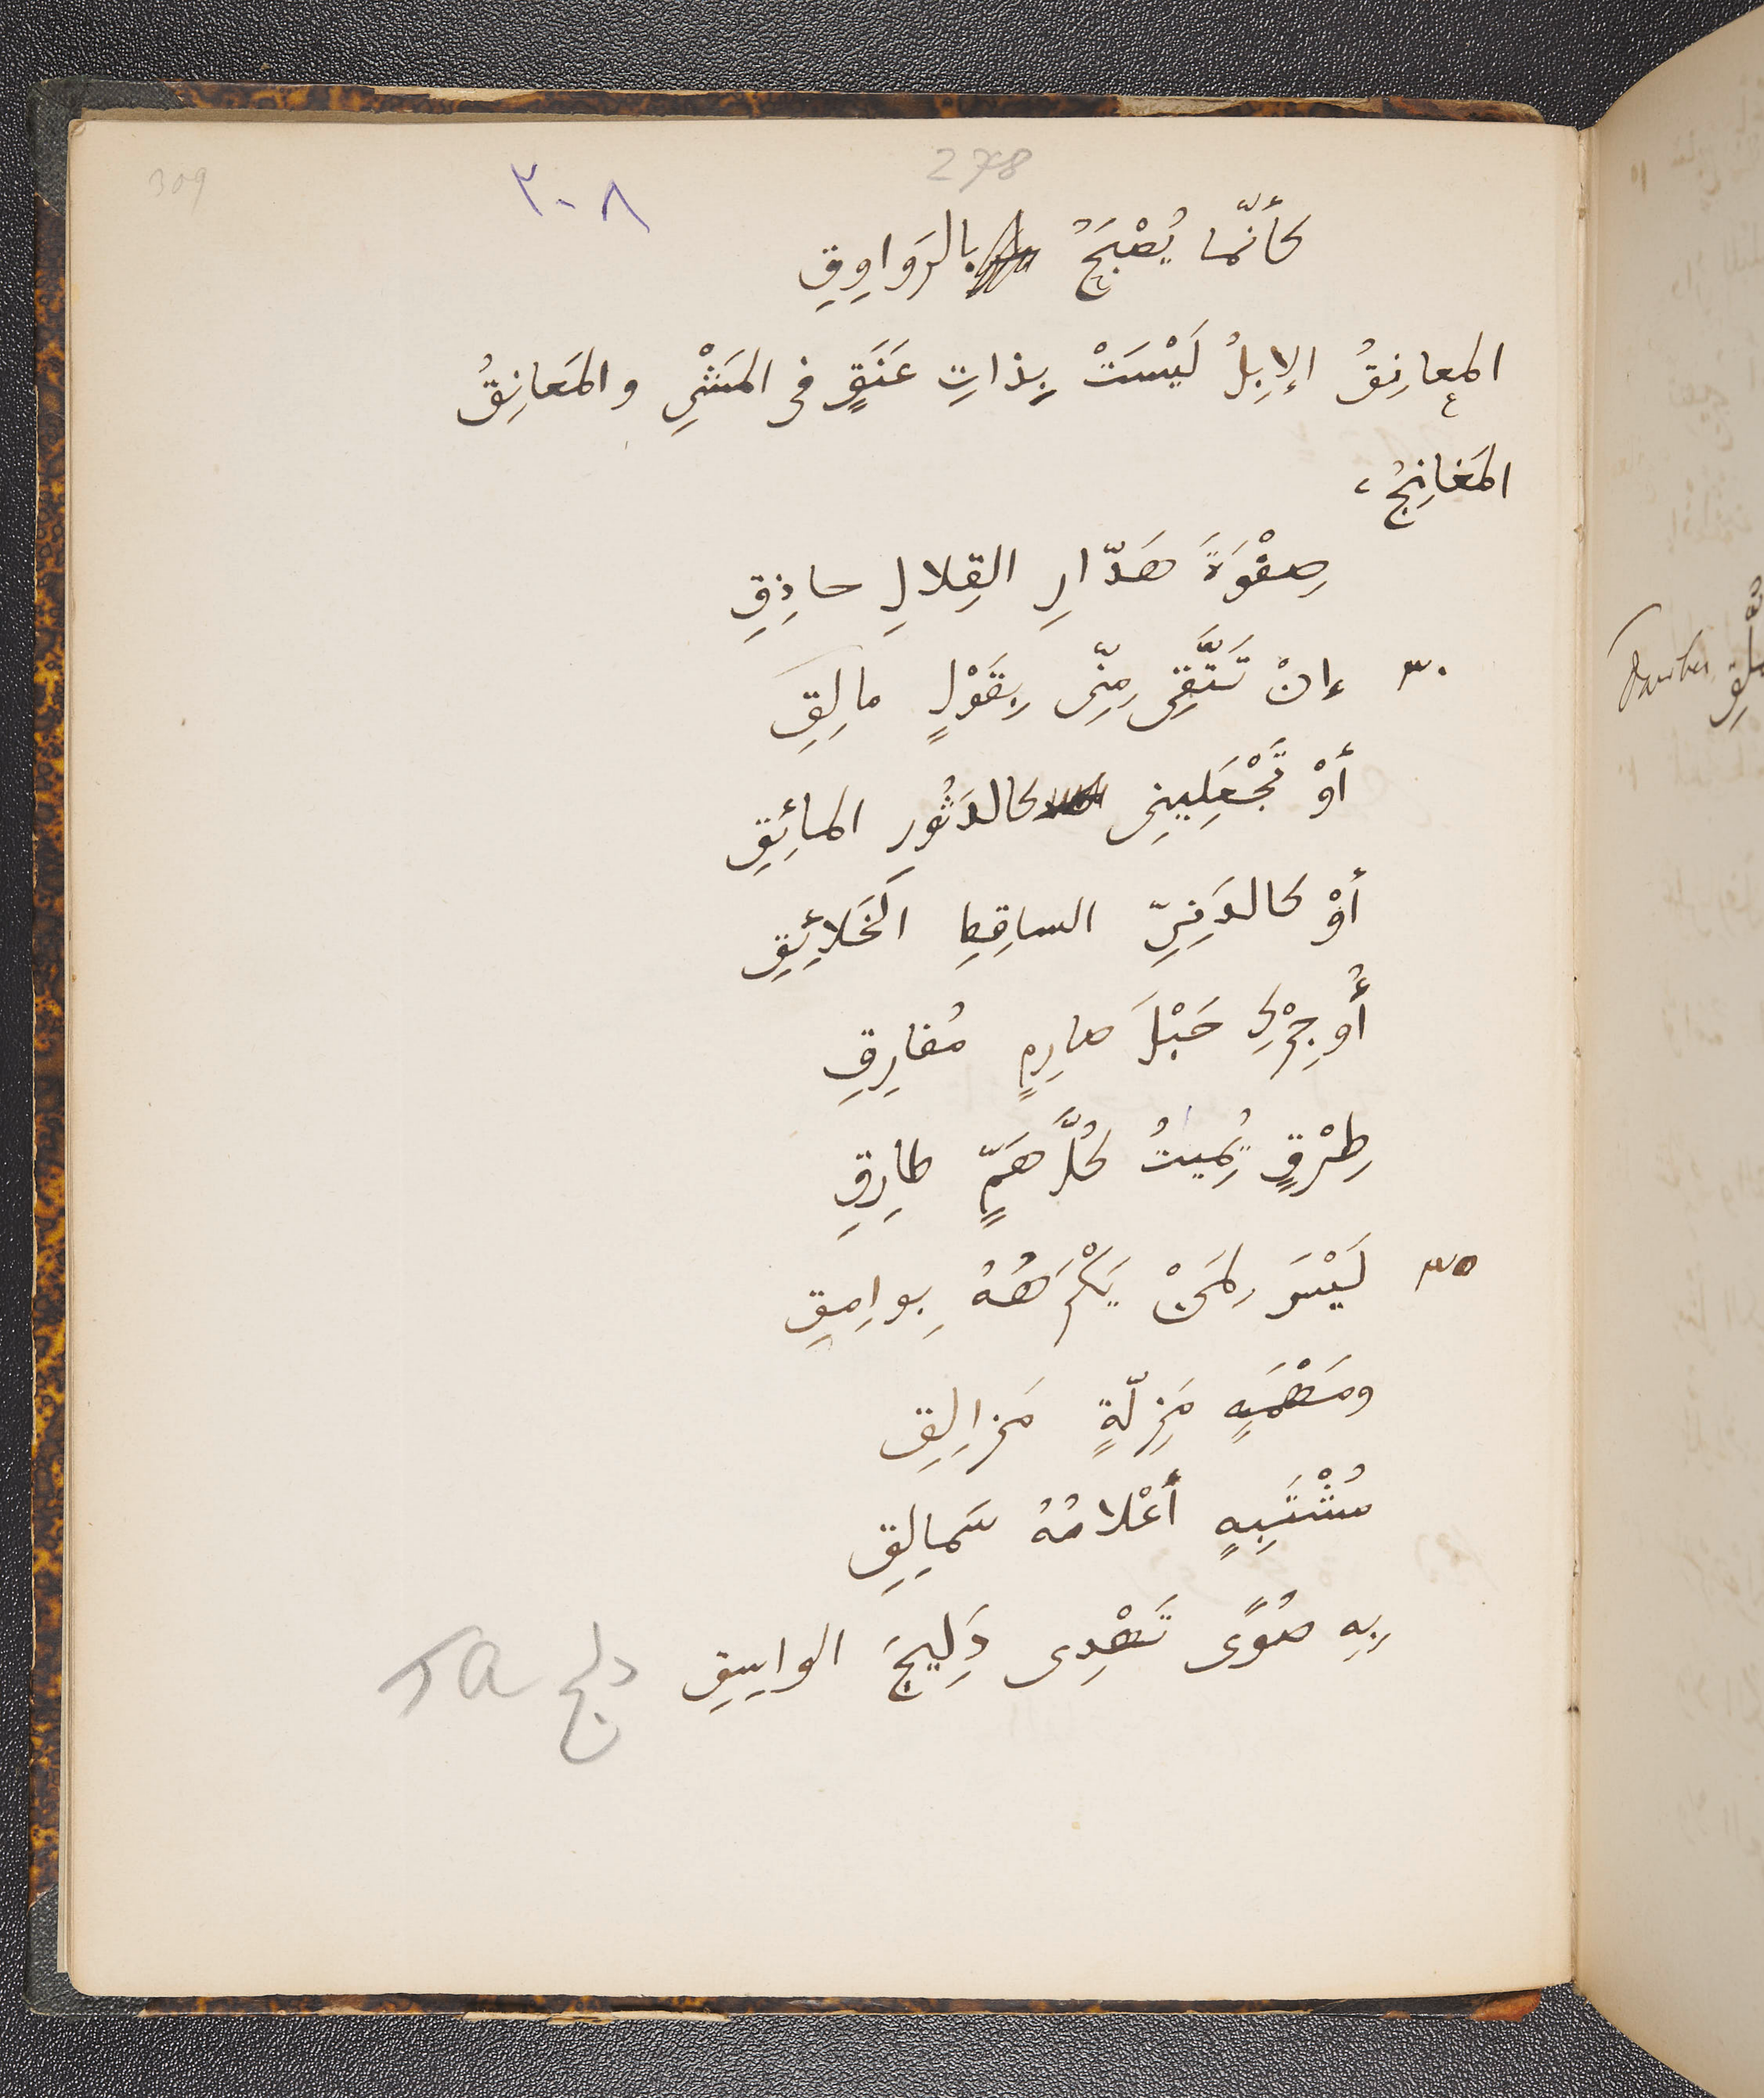 309
٣٠٨
278
كأنّما يُصْبَحُ بالرَوَاوِقِ
المعانِقُ الإبِلُ لَيْسَتْ بِذاتِ عَنَقٍ فى المَشْىِ والمَعانِقُ
المَغانِجُ،
صِفْوَةَ هَدّارِ القِلالِ حاذِقِ
٣٠ إنْ تَتَّقِى مِنّى بِقَوْلٍ مالِقِ
أوْ تَجْعَلِينِى كالدَثُورِ المائِقِ
أوْ كالدَنِىّ الساقِطِ الخَلائِقِ
أُوجِرْكِ حَبْلَ صارِمٍ مُفارِقِ
طِرْقٍ يُمِيتُ كُلَّ هَمٍّ طارِقِ
٣٥ لَيْسَ لِمَنْ يَكْرَهُهُ بِوامِقِ
ومَهْمَهٍ مَزِلّةٍ مَزالِقِ
مُشْتَبِهٍ أعْلامُهُ سَمالِقِ
بِهِ صُوًى تَهْدِى دَلِيجَ الواسِقِ دلج TA
Barther